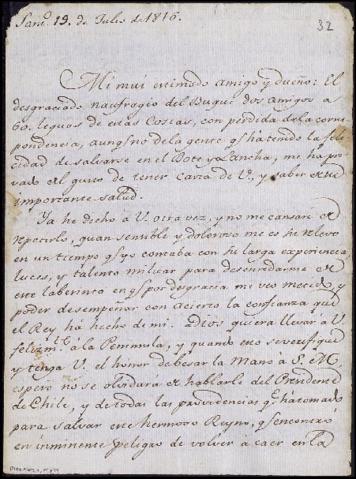 Sant.º 19. de Julio de 1816.
32
Mi mui estimado amigo y dueño: El
desgraciado naufragio del Buque dos amigos a
60. leguas de estas Costas, con perdida de la corres
pondencia, aunq.e no de la gente q.e ha tenido la feli
cidad de salvarse en el Bote y Lancha, me ha pri
vado el gusto de tener carta de V., y saber de su
importante salud.
Ya he dicho a V. otra vez, y no me cansaré de
repetirlo, quan sensible y doloroso me es su relevo
en un tiempo q.e yo contaba con su larga experiencia
luces, y talento militar para desenredarme de
este laberinto en q.e por desgracia me veo metido, y
poder desempeñar con acierto la confianza que
el Rey ha hecho de mi. Dios quiera llevar à V.
felizm.te à la Peninsula, y quando eso se verifique
y tenga V. el honor de besar la Mano a S. M.
espero no se olvidará de hablarle del Presidente
de Chile, y de todas las providencias q.e ha tomado
para salvar este hermoso Reyno, q.e se encontró
en inminente peligro de volver à caer en la